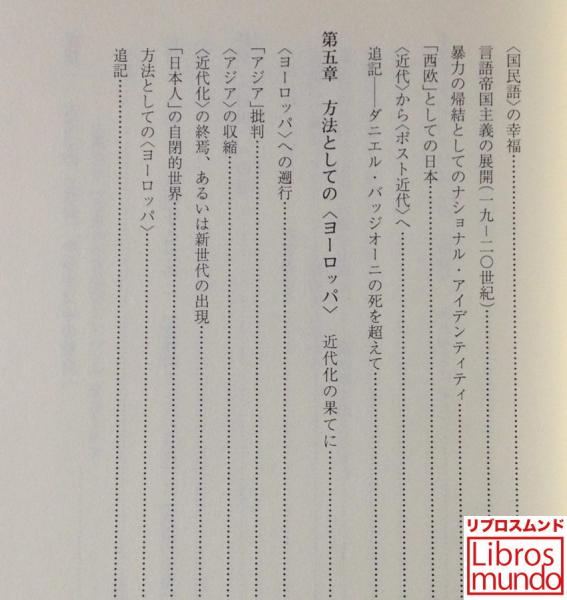 〈国民語〉の幸福
言語帝国主義の展開(一九−二〇世紀)
暴力の帰結としてのナショナル・アイデンティティ
「西欧」としての日本
〈近代〉から〈ポスト近代〉へ
追記――ダニエル・バッジオーニの死を超えて
第五章 方法としての〈ヨーロッパ〉 近代化の果てに
〈ヨーロッパ〉への遡行
「アジア」批判
〈アジア〉の収縮
〈近代化〉の終焉、あるいは新世代の出現
「日本人」の自閉的世界
方法としての〈ヨーロッパ〉
追記
リブロスムンド
Libros
mundo